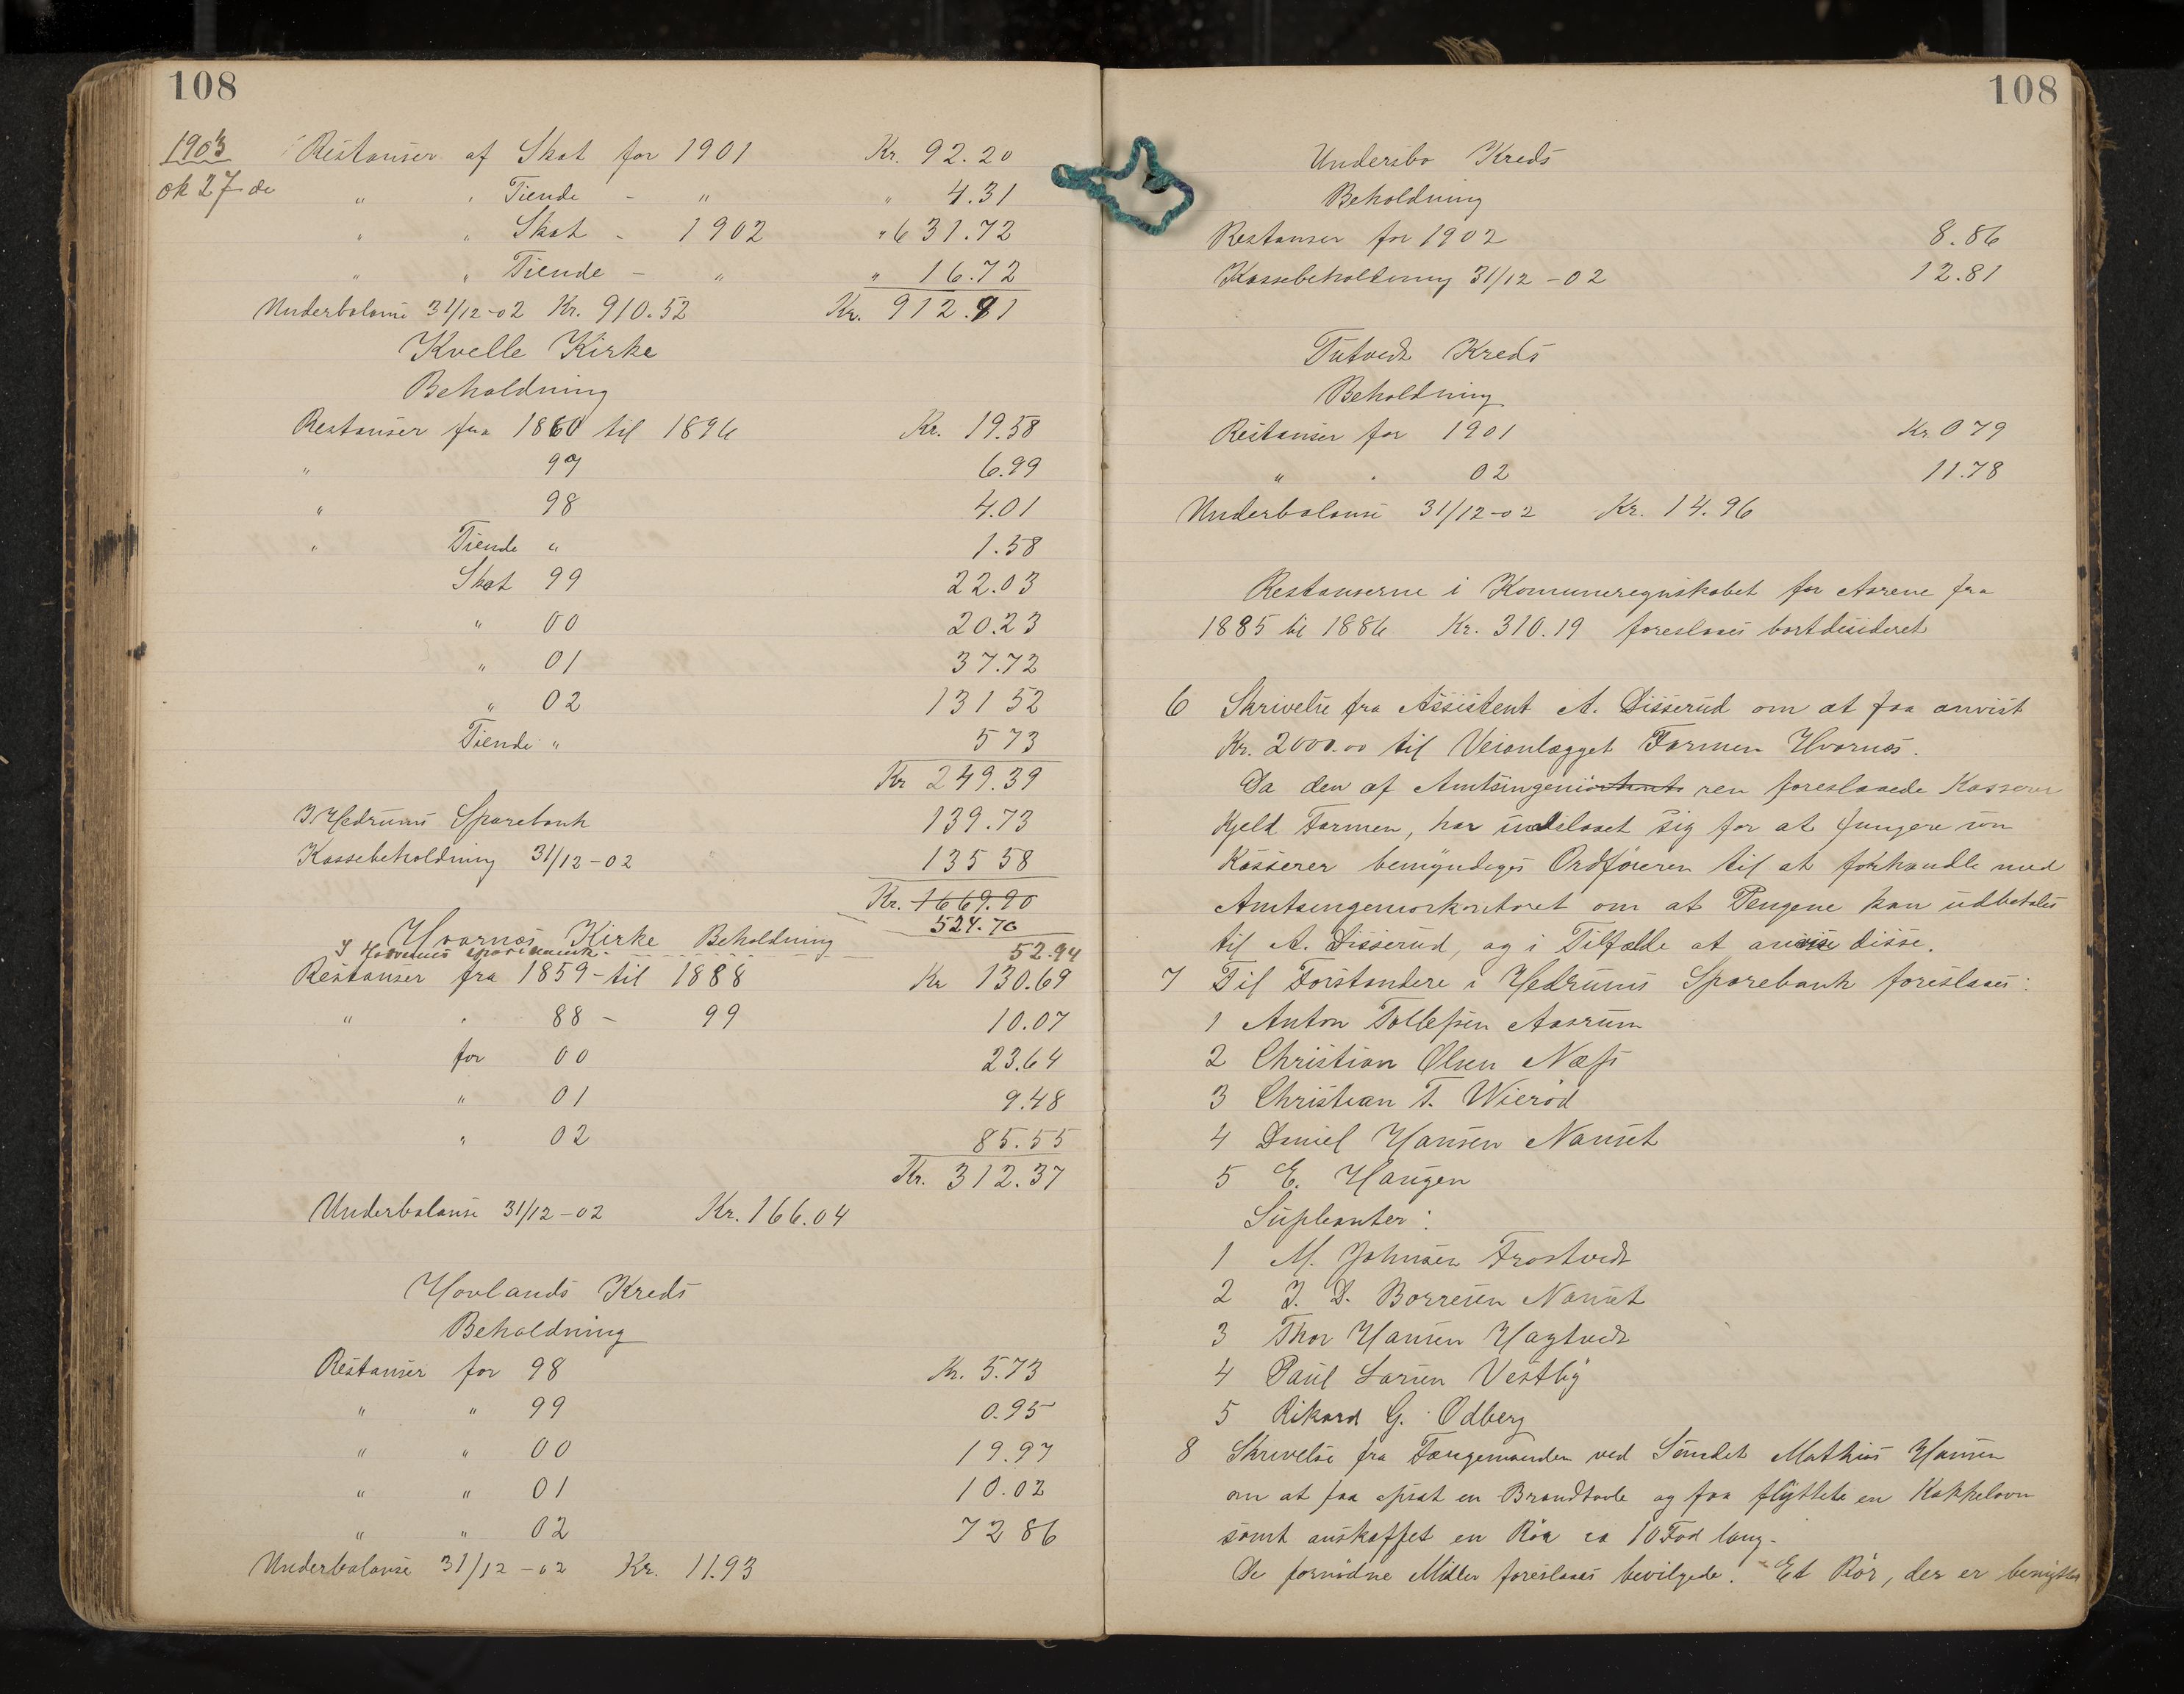 108
1903
ok 27 de
Restanser af Skat for 1901 Kr. 92.20
" " Tiende - " " 4.31
" " Skat - 1902 " 631.72
" " Tiende - " " 16.72
Underbalanse 31/12-02 Kr. 910.52 Kr. 912.91
Kvelle Kirke
Beholdning
Restanser fra 1860 til 1896 Kr. 19.58
" 97 6.99
" 98 4.01
" Tiende " 1.58
Skat 99 22.03
" 00 20.23
" 01 37.72
" 02 131 52
Tiende " 5 73
Kr 249.39
I Hedrums Sparebank 139.73
Kassebeholdning 31/12-02 135 58
Kr. 1669.90
524.70
Hvarnes Kirke Beholdning
I Hedrums sparebank 52.94
Restanser fra 1859 - til 1888 Kr 130.69
" " 88 - 99 10.07
for 00 23.64
" 01 9.48
" 02 85.55
Kr. 312.37
Underbalanse 31/12-02 Kr. 166.04
Hovlands Kreds
Beholdning
Restanser for 98 Kr. 5.73
" " 99 0.95
" " 00 19.97
" " 01 10.02
" " 02 72 86
Underbalanse 31/12-02 Kr. 11.93
108
Undersbo Kreds
Beholdning
Restanser for 1902 8.86
Kassebeholdning 31/12-02 12.81
Tutvedt Kreds
Beholdning
Restanser for 1901 Kr 0 79
" " 02 11.78
Underbalanse 31/12-02 Kr. 14.96
Restanserne i Komuneregnskabet for Aarene fra
1885 til 1886 Kr. 310.19 foreslaaes bortdesideret
6 Skrivelse fra Assistent A. Disserud om at faa anvist
Kr. 2000.00 til Veianlægget Farmen Hvarnes.
Da den af Amtsingeniøren foreslaaede Kasserer
Kjeld Farmen, har undslaaet sig for at fungere som
Kasserer bemyndiges Ordføreren til at forhandle med
Amtsingeniørkontoret om at Pengene kan udbetales
til A. Disserud, og i Tilfælde at anvise disse.
7 Til Forstandere i Hedrums Sparebank foreslaaes:
1 Anton Tollefsen Aasrum
2 Christian Olsen Næss
3 Christian T. Wierød
4 Daniel Hansen Nanset
5 E. Haugen
Supleanter:
1 M. Johnsen Frostvedt
2 J. D. Borresen Nanset
3 Thor Hansen Hagtvedt
4 Paul Larsen Vestby
5 Rikard G. Odberg
8 Skrivelse fra Færgemanden ved Sundet Mathias Hansen
om at faa opsat en Brandtavle og faa flyttet en Kakkelovn
samt anskaffet en Rør ca 10 Fod lang.
De fornødne Midler foreslaaes bevilgede. Et Rør, der er benyttet